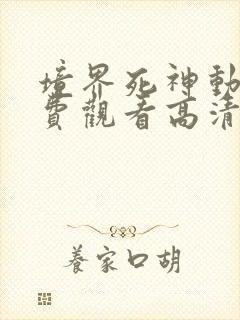 境界死神動
費觀看高清
養家口胡